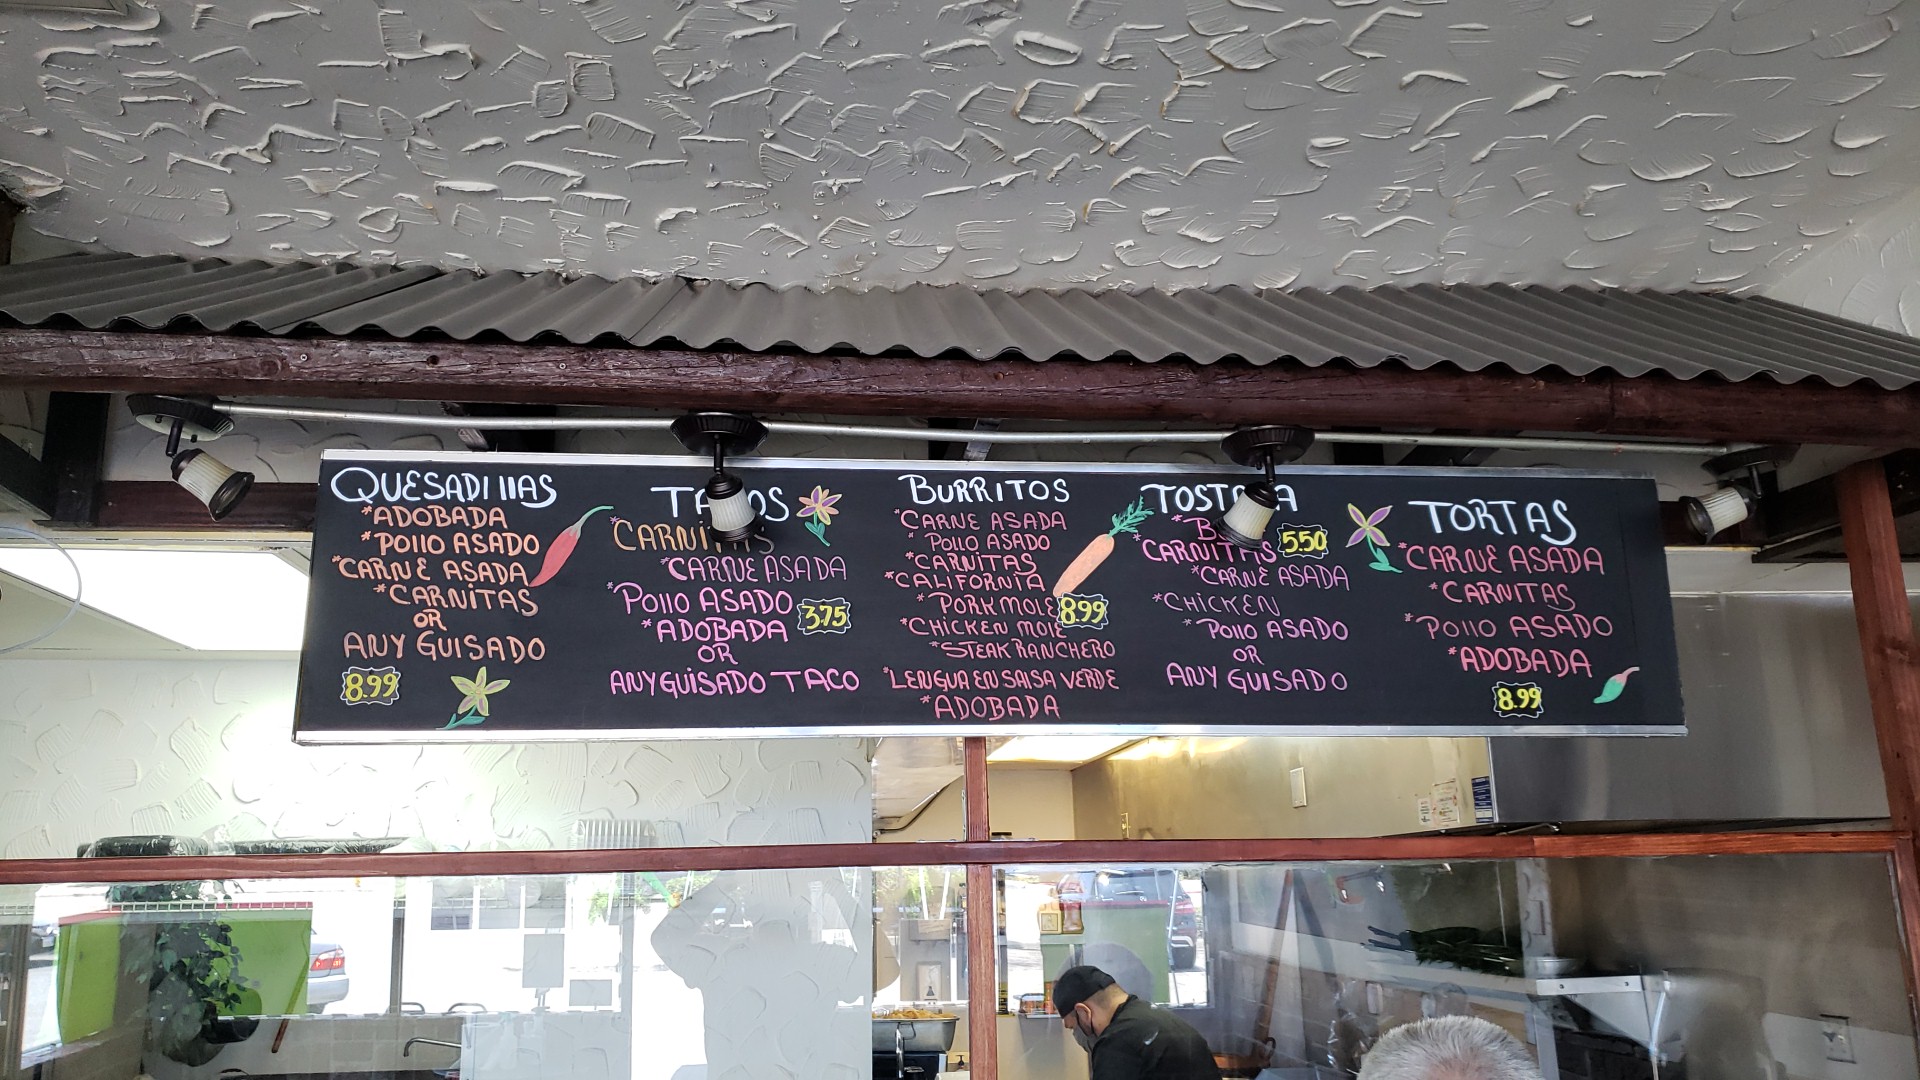 QUESADIllAS
*ADOBADA
*POllO ASADO
*CARNE ASADA
*CARNITAS
OR
ANY GUISADO
8.99
*CARNITAS
*CARNE ASADA
*POllO ASADO
3.75
*ADOBADA
OR
ANY GUISADO TACO
BURRITOS
*CARNE ASADA
*POllO ASADO
*CARNITAS
*CALIFORNIA
*PORK MOLE
8.99
*CHICKEN MOlE
*STEAK RANCHERO
*LENGUA EN SAlSA VERDE
*ADOBADA
5.50
*CARNITAS
*CARNE ASADA
*CHICKEN
*POllO ASADO
OR
ANY GUISADO
TORTAS
*CARNE ASADA
*CARNITAS
*POllO ASADO
*ADOBADA
8.99